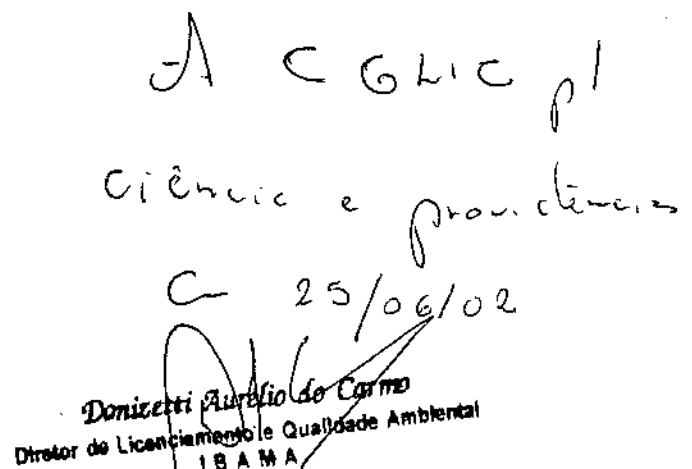 A CGLIC p/
Ciência e providências
Em 25/06/02
Donizetti Aurélio do Carmo
Diretor de Licenciamento e Qualidade Ambiental
IBAMA